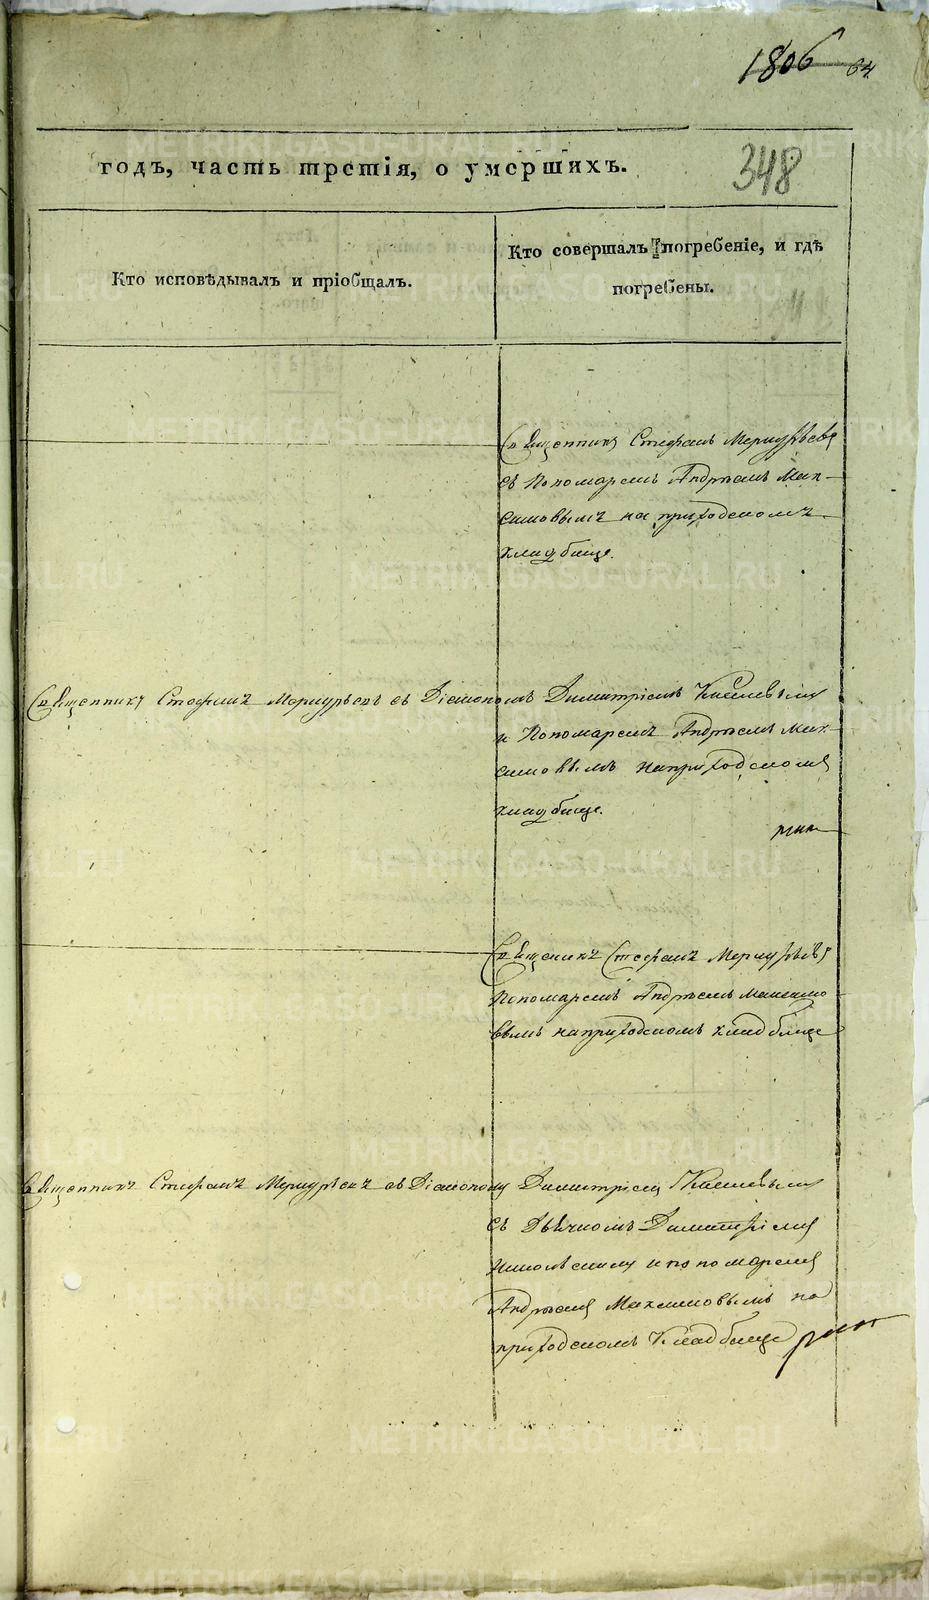 1806 64
годъ, часть третія, о умершихъ.
348
Кто исповѣдывалъ и пріобщалъ.
Кто совершалъ погребеніе, и гдѣ
погребены.
Священникъ Стефанъ Меркурьевъ
съ Пономаремъ Андреемъ Мак-
симовымъ на приходскомъ
кладбище.
Священникъ Стефанъ Меркурьевъ съ Діакономъ Димитріемъ Киселевымъ
и Пономаремъ Андреемъ Мак-
симовымъ на приходскомъ
кладбище.
Священникъ Стефанъ Меркурьевъ
Пономаремъ Андреемъ Максимо
вымъ на приходскомъ кладбище
Священникъ Стефанъ Меркурьевъ съ Діакономъ Димитріемъ Киселевымъ
съ Дьячкомъ Димитріемъ
и пономаремъ
Андреемъ Максимовымъ на
приходскомъ Кладбище
METRIKI.GASO-URAL.RU